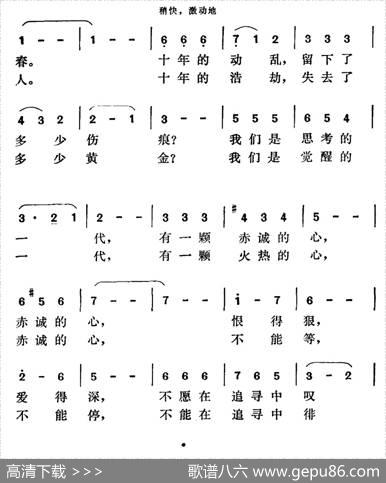 稍快，激动地
1 - - 1 - - 6 6 6 7 1 2 3 3 3
春。 十年的 动 乱，留下了
人。 十年的 浩 劫，失去了
4 3 2 2 - 1 3 - - 5 5 5 6 5 4
多少伤 痕？ 我们是 思考的
多少黄 金？ 我们是 觉醒的
3 · 2 1 2 - - 3 3 3 #4 3 4 5 - -
一 代， 有一颗 赤诚的 心，
一 代， 有一颗 火热的 心，
6 #5 6 7 - - 7 - - i - 7 6 - -
赤诚的 心， 恨 得 狠，
赤诚的 心， 不 能 等，
2 - 6 5 - - 6 6 6 6 5 4 3 - 2
爱 得 深， 不愿在 追寻中 叹
不 能 停， 不能在 追寻中 徘
高清下载 >>> 歌谱八六 www.gepu86.com